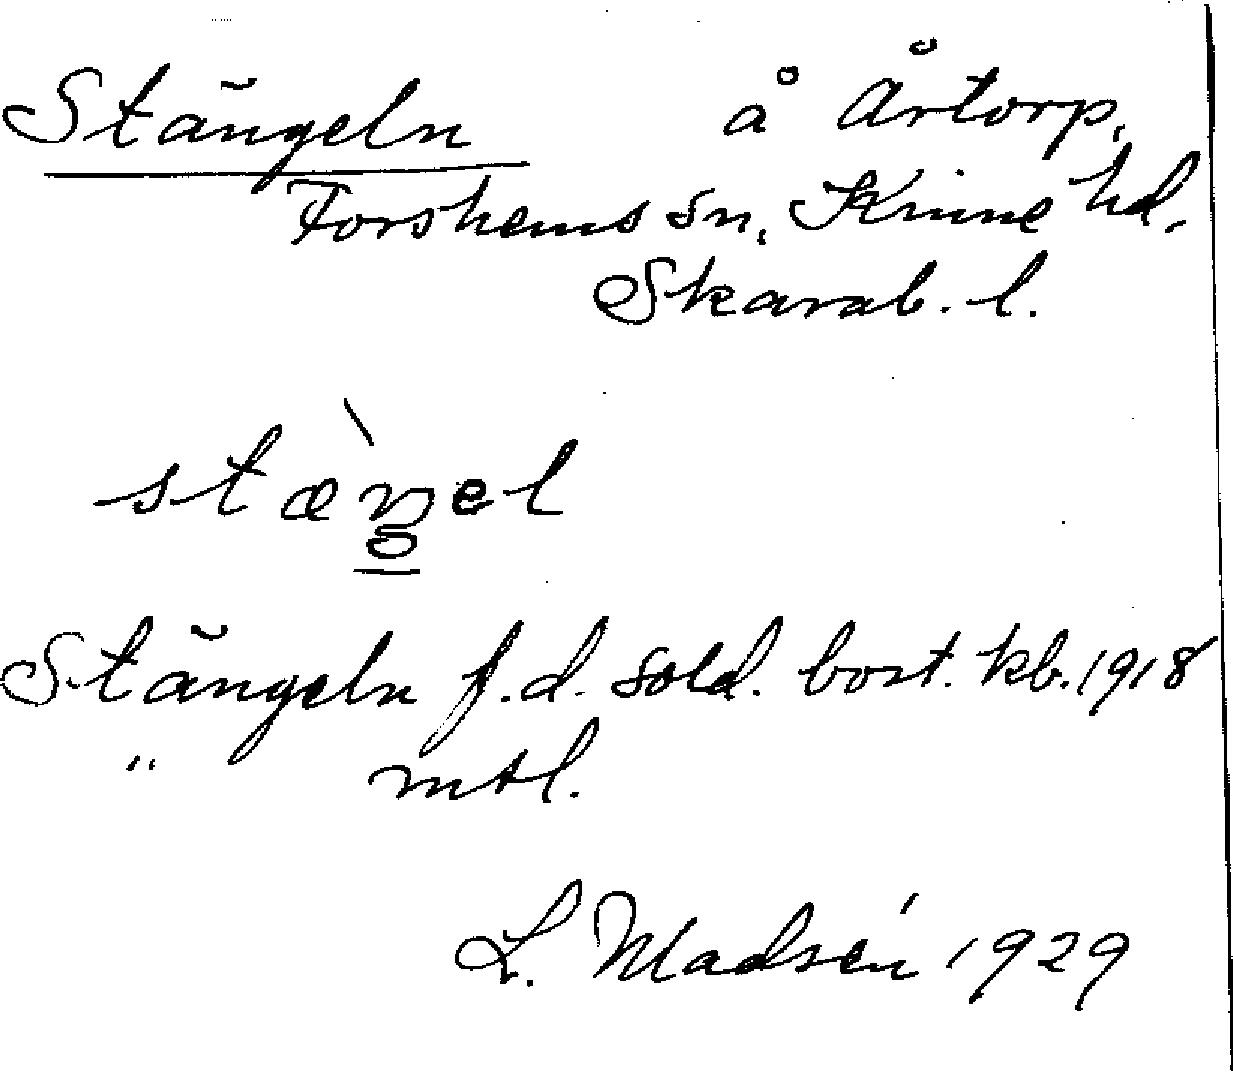 Stängeln å Årtorp,
Forshems sn, Kinne hd.
Skarab. l.
stæ̀ŋel
Stängeln f.d. sold. bost. kb. 1918
" mtl.
L. Madsén 1929